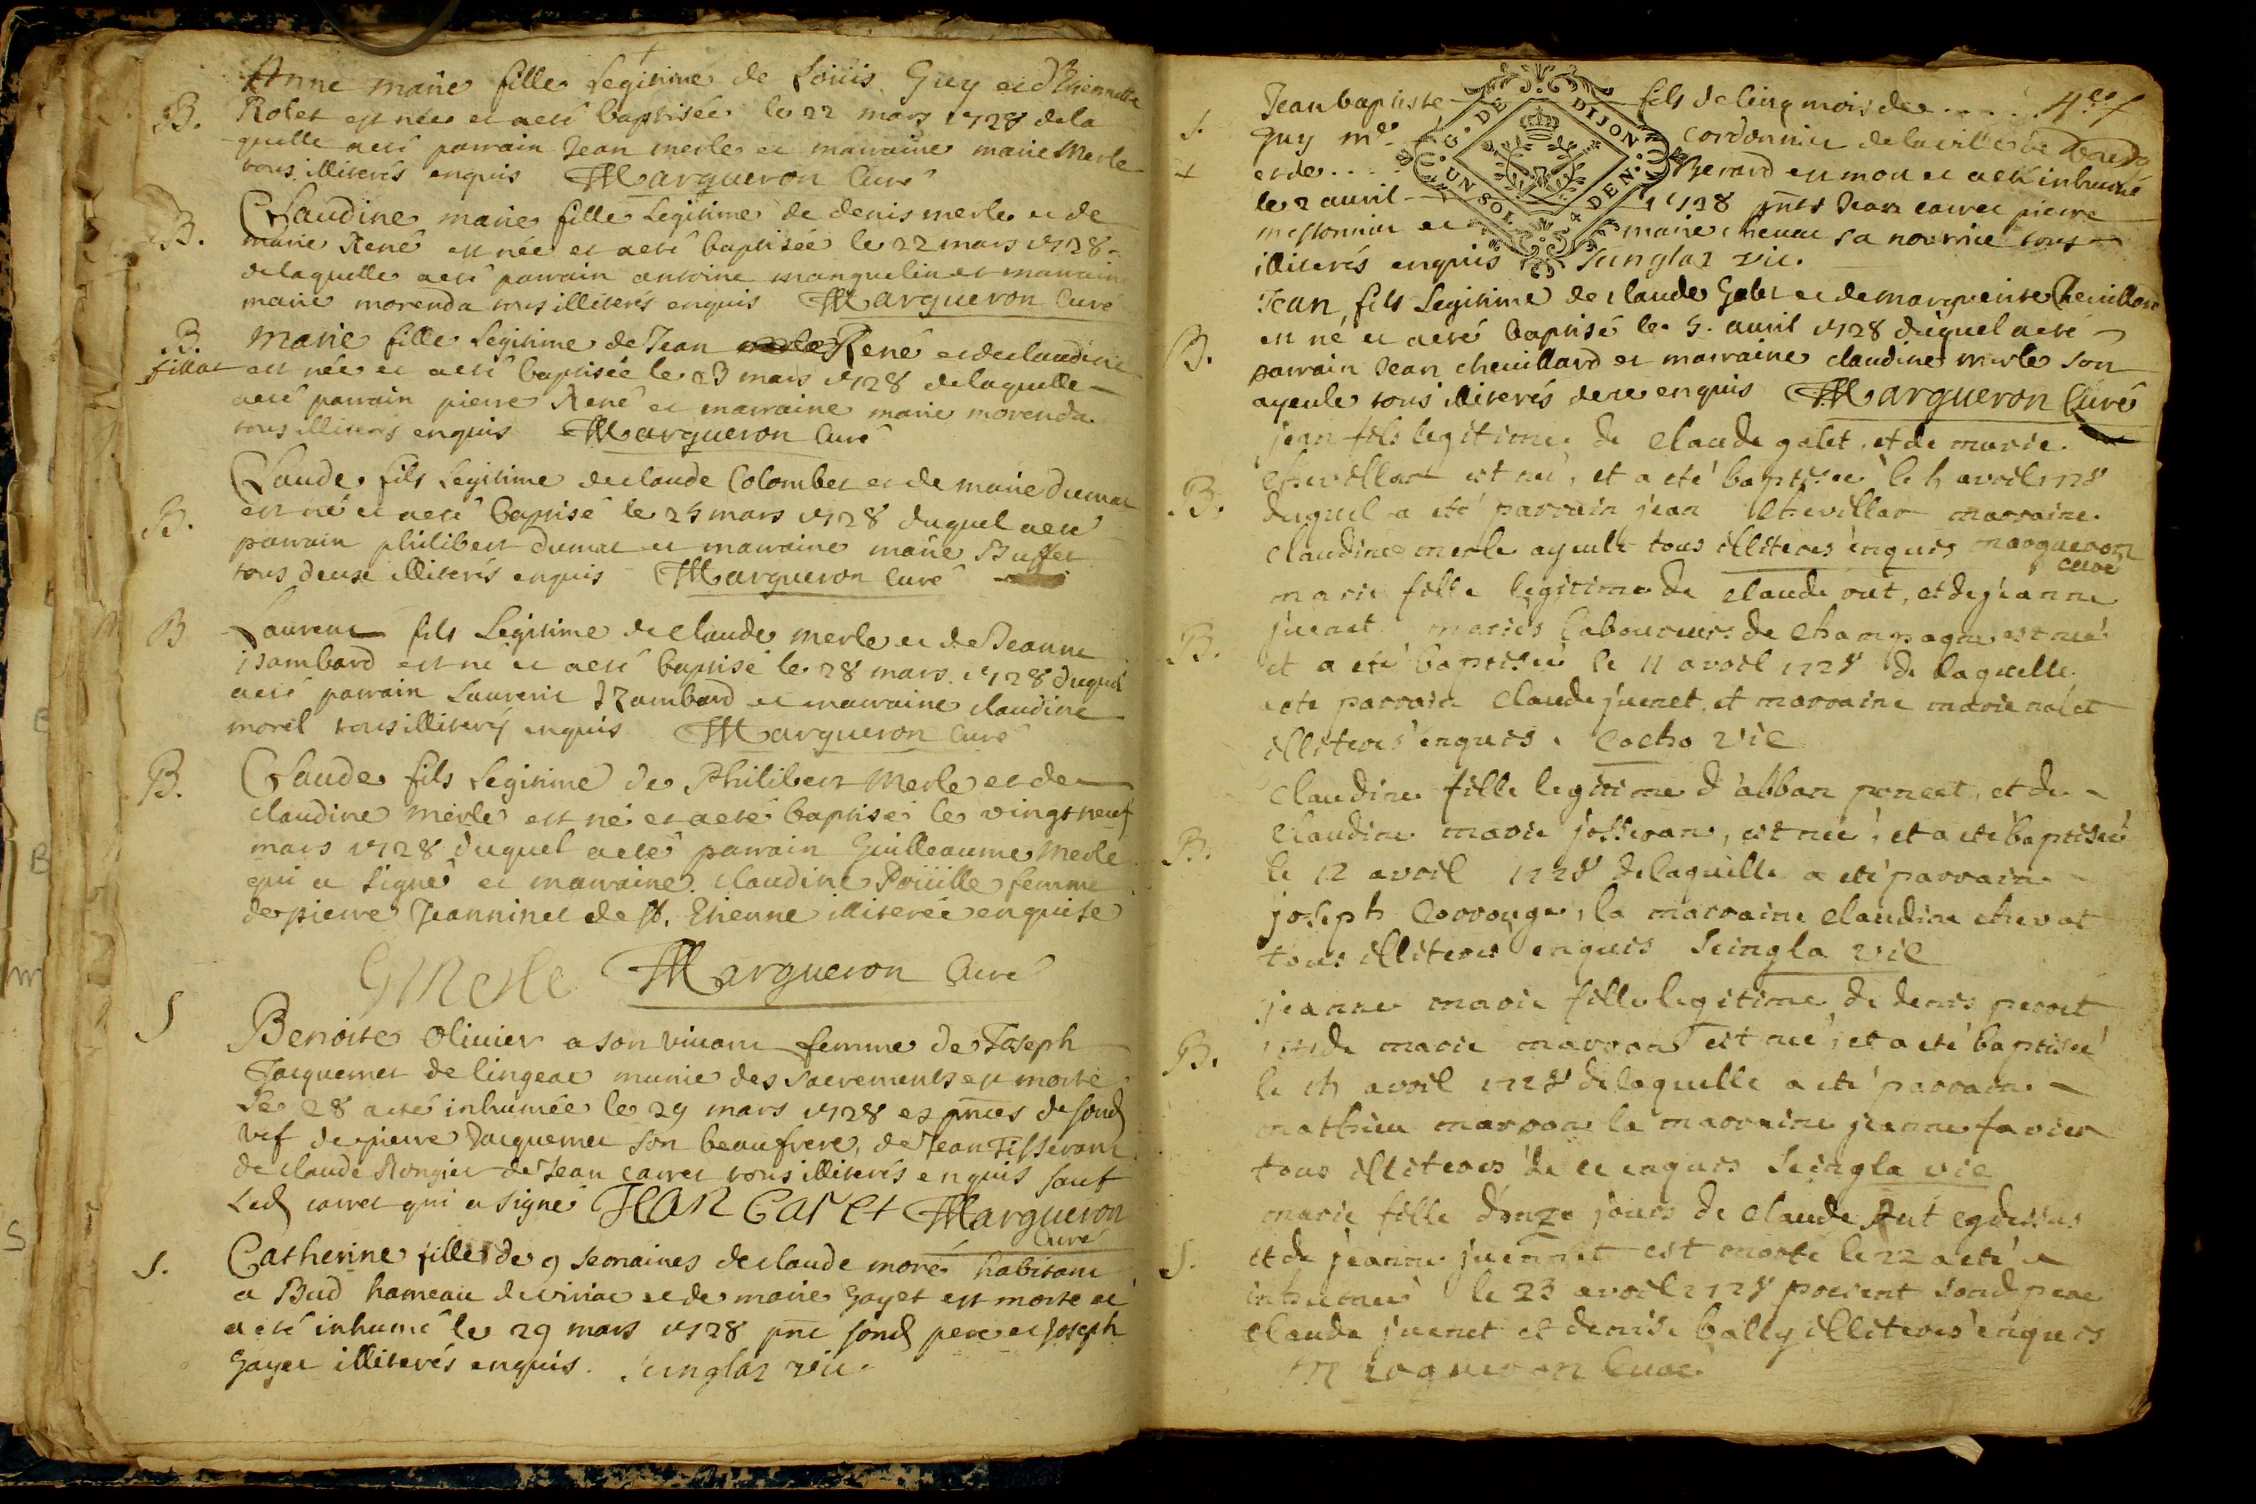 Anne marie fille Legitime de Loüis Guy et d'Etiennette
B. Robet est née et a eté baptisée le 22 mars 1728 de la
quelle a eté parrain Jean merle et marraine marie Merle
tous illiterés enquis Margueron Curé
Claudine marie fille Legitime de denis merle et de
B. marie René est née et a eté baptisée le 22 mars 1728
de laquelle a eté parrain antoine manguelin et marraine
marie morenda tous illiterés enquis Margueron Curé
B. Marie fille Legitime de Jean René et de claudine
fillat est née et a eté baptisée le 23 mars 1728 de laquelle
a eté parrain pierre René et marraine marie morenda
tous illiterés enquis Margueron Curé
Claude fils Legitime de claude Colombet et de marie Dumat
B. est né et a eté baptisé le 25 mars 1728 duquel a eté
parrain philibert dumat et marraine marie Buffet
tous deux illiterés enquis Margueron Curé
B Laurent fils Legitime de claude merle et de Jeanne
isambard est né et a eté baptisé le 28 mars 1728 duquel
a eté parrain Laurent Izambard et marraine claudine
morel tous illiterés enquis Margueron Curé
B. Claude fils Legitime de Philibert Merle et de
claudine Merle est né et a eté baptisé le vingt neuf
mars 1728 duquel a eté parrain Guilleaume Merle
qui a signé et marraine claudine Poüille femme
de pierre Jeanninet de St. Etienne illiterée enquise
GMerle Margueron Curé
S Benoite Olivier a son vivant femme de Joseph
Jacquemet de lingeat munie des sacrements est morte
Le 28 a eté inhumée le 29 mars 1728 es pnces de sond
de pierre Jacquemet son beaufrere, de Jean Tisserant
de claude Rongier de Jean carret tous illiterés enquis sauf
Led carret qui a signé JEAN CARET Margueron
Curé
S. Catherine fille de 9 semaines de claude moré habitant
a Bud hameau de viriat et de marie Gayet est morte et
a eté inhumé le 29 mars 1728 pnt sond pere et Joseph
Gayet illiterés enquis. Sunglar vic.
Jean baptiste fils de cinq mois de
S. Guy md. cordonnier de la ville de
+ et de .... Berard est mort et a eté inhumé
le 2 avril 1728 pnts Jean carret pierre
mestonnier et marie chevat sa nourrice tous
illiterés enquis Sunglar vic.
G. DE DIJON
UN SOL 4 DEN.
Jean fils Legitime de claude Galet et de marguerite Chevillard
B. est né et a eté baptisé le 5. avril 1728 duquel a eté
parrain Jean chevillard et marraine claudine merle son
ayeule tous illiterés de ce enquis Margueron Curé
jean fils legitime de claude galet, et de marie
B. Chevillar est né, et a eté baptisée le 5 avril 1728
duquel a eté parrain jean Chevillar marraine
claudine merle ayeule tous illiteres enquis margueron
curé
marie fille legitime de claude rut, et de jeanne
B. juenet mariés laboureurs de Champagne est né
et a eté baptisée le 11 avril 1728 de laquelle
a eté parrain claude juenet, et marraine marie nalet
illiteres enquis. Cocho vic
claudine fille legitime d'abban poncet, et de
B. claudine marie josseran, est née, et a eté baptisée
le 12 avril 1728 de laquelle a eté parrain
joseph Corrouge, la marraine claudine chevat
tous illiteres enquis Seingla vic
jeanne marie fille legitime de denis perret
B. et de marie marron est née, et a eté baptisée
le 15 avril 1728 de laquelle a eté parrain
mathieu marron la marraine jeanne favier
tous illiteres de ce enquis Seingla vic
marie fille d'onze jours de claude Rut cy dessus
S. et de jeanne juennet est morte le 22 a eté
inhumée le 23 avril 1728 present sond pere
claude juenet et denis bally illiteres enquis
Margueron Curé